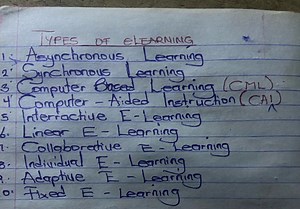 TYPES OF ELEARNING
1. Asynchronous Learning
2. Synchronous Learning
3 Computer Based Learning (CML)
4 Computer - Aided Instruction (CAI)
5 Interractive E-Learning
6. Linear E-Learning
7. Collaborative E-Learning
8. Individual E-Learning
9. Adaptive E-Learning
10. Fixed E-Learning